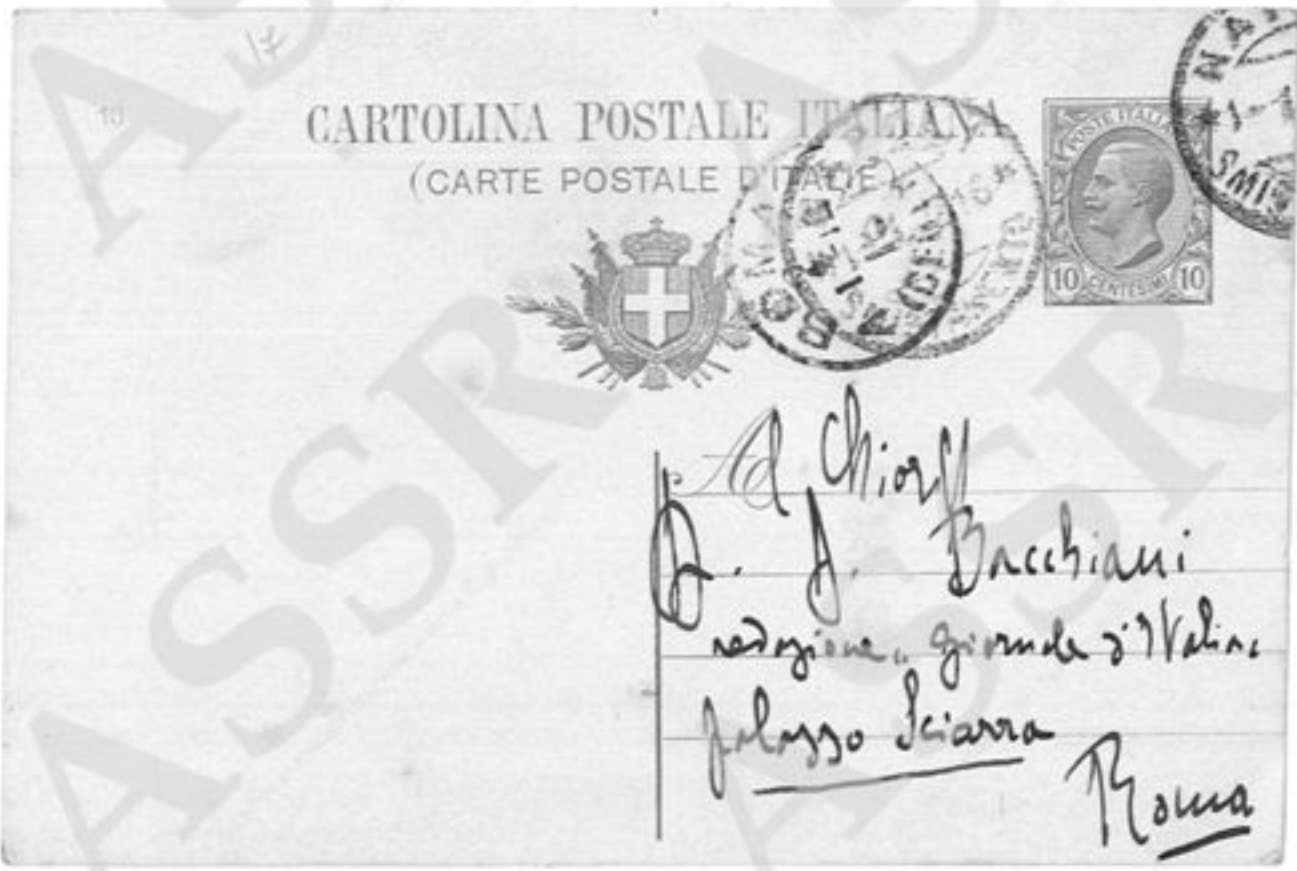 1/7
18
CARTOLINA POSTALE ITALIANA
(CARTE POSTALE D'ITALIE)
POSTE ITALIA
10 CENTESIMI 10
ROMA
Al Chior
A. Bacchiani
redazione "Giornale d'Italia"
palazzo Sciarra
Roma
ASSR
ASSR
ASSR